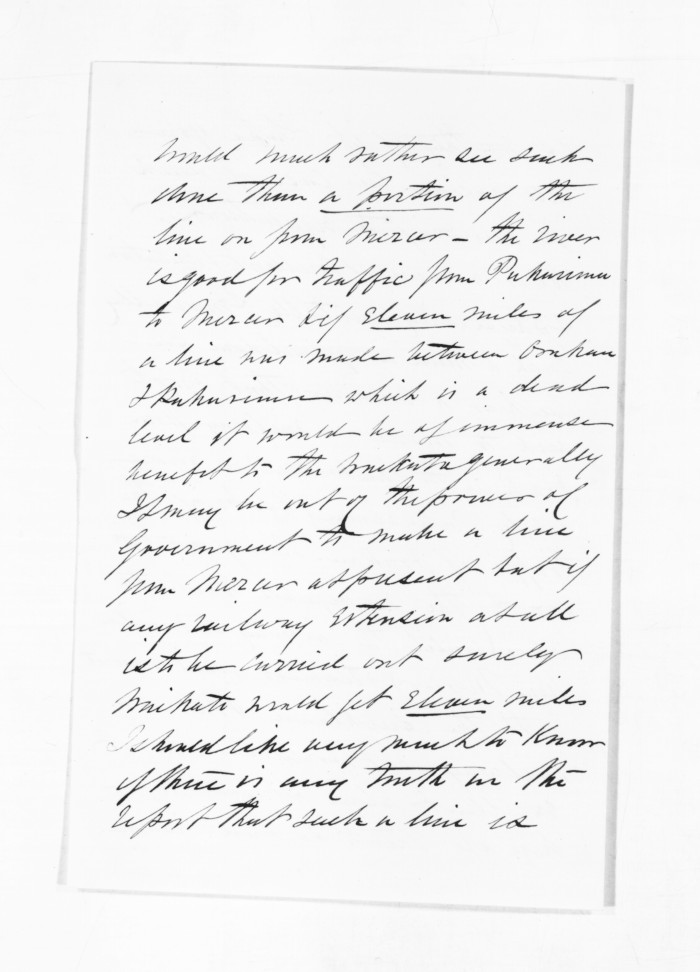 would much rather see such
done than a portion of the
line on from Mercer – the river
is good for traffic from Pukurimu
to Mercer & if Eleven miles of
a line was made between
& Pukurimu which is a dead
level it would be of immense
benefit to the Waikato generally
It may be out of the power of
Government to make a line
from Mercer at present but if
any railway Extension at all
is to be carried out surely
Waikato would get Eleven miles
I should like very much to Know
if there is any truth in the
report that such a line is